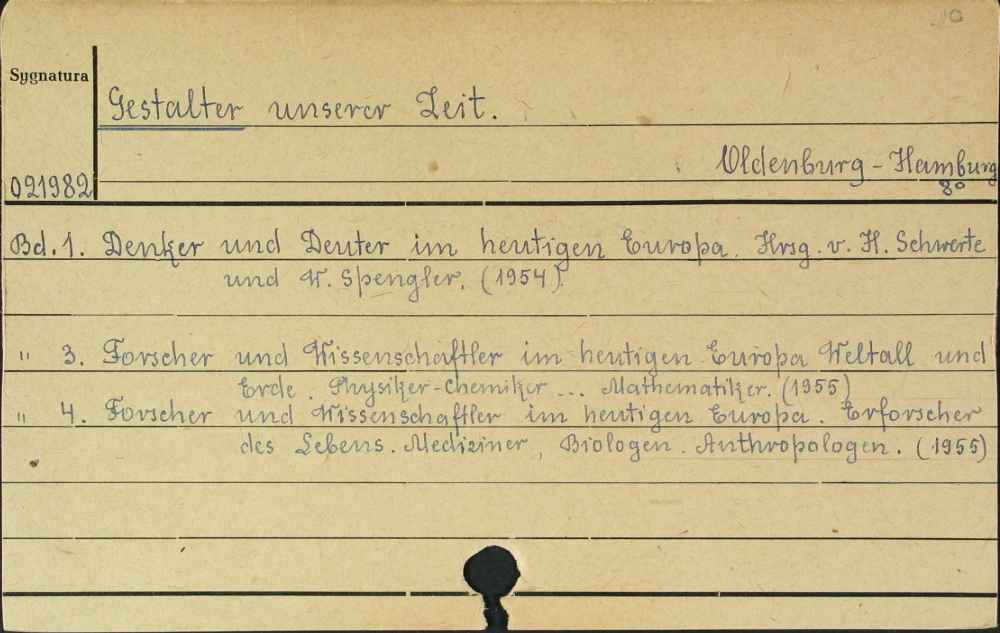 Sygnatura
Gestalter unserer Zeit.
Oldenburg - Hamburg
021982
8°
Bd. 1. Denker und Deuter im heutigen Europa. Hrsg. v. H. Schwerte
und W. Spengler. (1954).
" 3. Forscher und Wissenschaftler im heutigen Europa Weltall und
Erde. Physiker-Chemiker ... Mathematiker. (1955)
" 4. Forscher und Wissenschaftler im heutigen Europa. Erforscher
des Lebens. Mediziner, Biologen. Anthropologen. (1955)